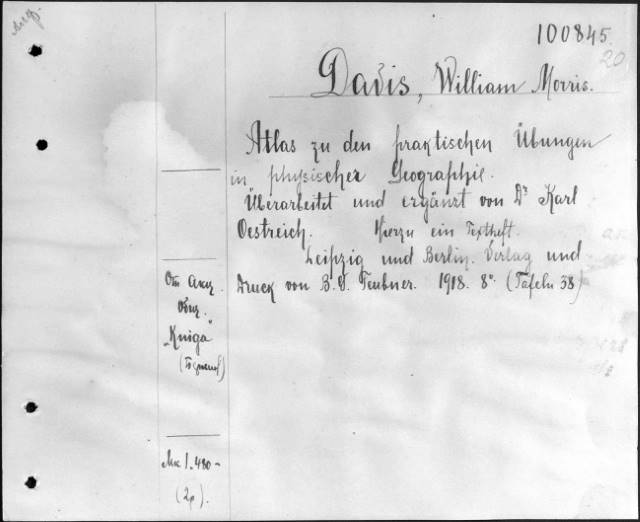 100845.
20
Davis, William Morris.
Atlas zu den praktischen Übungen
in physischer Geographie.
Überarbeitet und ergänzt von Dr Karl
Oestreich. Hierzu ein Textheft.
Leipzig und Berlin. Verlag und
Druck von B. G. Teubner. 1918. 8°. (Tafeln 38)
От акц.
общ.
„Kniga"
Мк 1.480-
(2р).